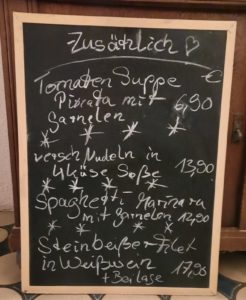 Zusätzlich ♡
Tomaten Suppe €
Pikata mit 6,90
Garnelen
versch Nudeln in
4käse Soße 13,90
Spaghetti Marinara
mit Garnelen 12,90
Steinbeißer Filet
in Weißwein 17,90
+ Beilage